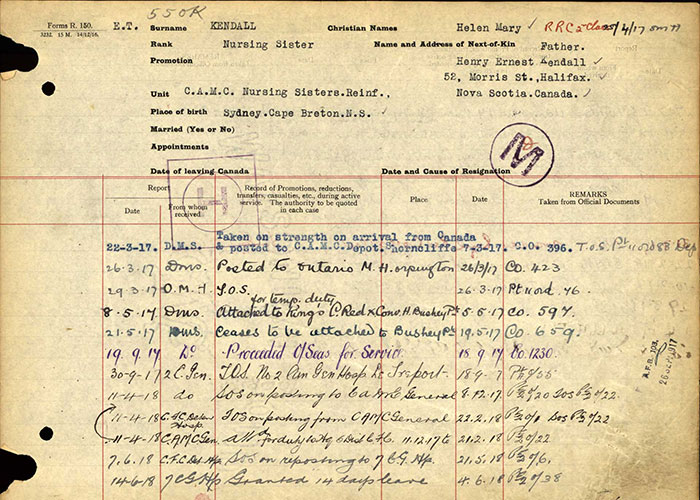 550K
Forms R. 150.
E.T. Surname KENDALL Christian Names Helen Mary ✓ RRC 2 Class 25/4/17
Rank Nursing Sister Name and Address of Next-of-Kin Father.
Promotion Henry Ernest Kendall ✓
52, Morris St., Halifax. ✓
Unit C.A.M.C. Nursing Sisters.Reinf., Nova Scotia.Canada. ✓
Place of birth Sydney.Cape Breton.N.S. ✓
Married (Yes or No)
Appointments
M
Date of leaving Canada Date and Cause of Resignation
H
Report Record of Promotions, reductions, transfers, casualties, etc., during active service. The authority to be quoted in each case Place Date REMARKS
Date From whom received Taken from Official Documents
Taken on strength on arrival from Canada
22-3-17. D.M.S. & posted to C.A.M.C.Depot. Shorncliffe 7-3-17. C.O. 396. T.O.S. Pt
26.3.17 Dms. Posted to Ontario M.H. Orpington 26/3/17 Co. 423
29.3.17 O.M.H T.O.S. 26.3.17 Pt II ord. 76
for temp. duty
8.5.17. Dms. Attached to King's C Red x Conv. H. Bushey Pk 5.5.17 Co. 597.
21.5.17 Dms. Ceases to be attached to Bushey Pk 19.5.17 Co. 659.
19.9.17 Do Proceeded O/Seas for Service 18.9.17 Co. 1230.
30-9-17 2 C. Gen. T.O.S. No 2 Can Gen Hosp Le Treport 18-9-17
11-4-18 do SOS on posting to General 8.12.17.
11-4-18 Hosp. TOS on posting from CAMC General 22.2.18
11-4-18 CAMC Gen. for duty to 11.12.17 to 21.2.18
7.6.18 SOS on reposting to 7 C G Hp 21.5.18
14-6-18 7 C G Hp Granted 14 days leave 4.6.18
A.F.B. 103.